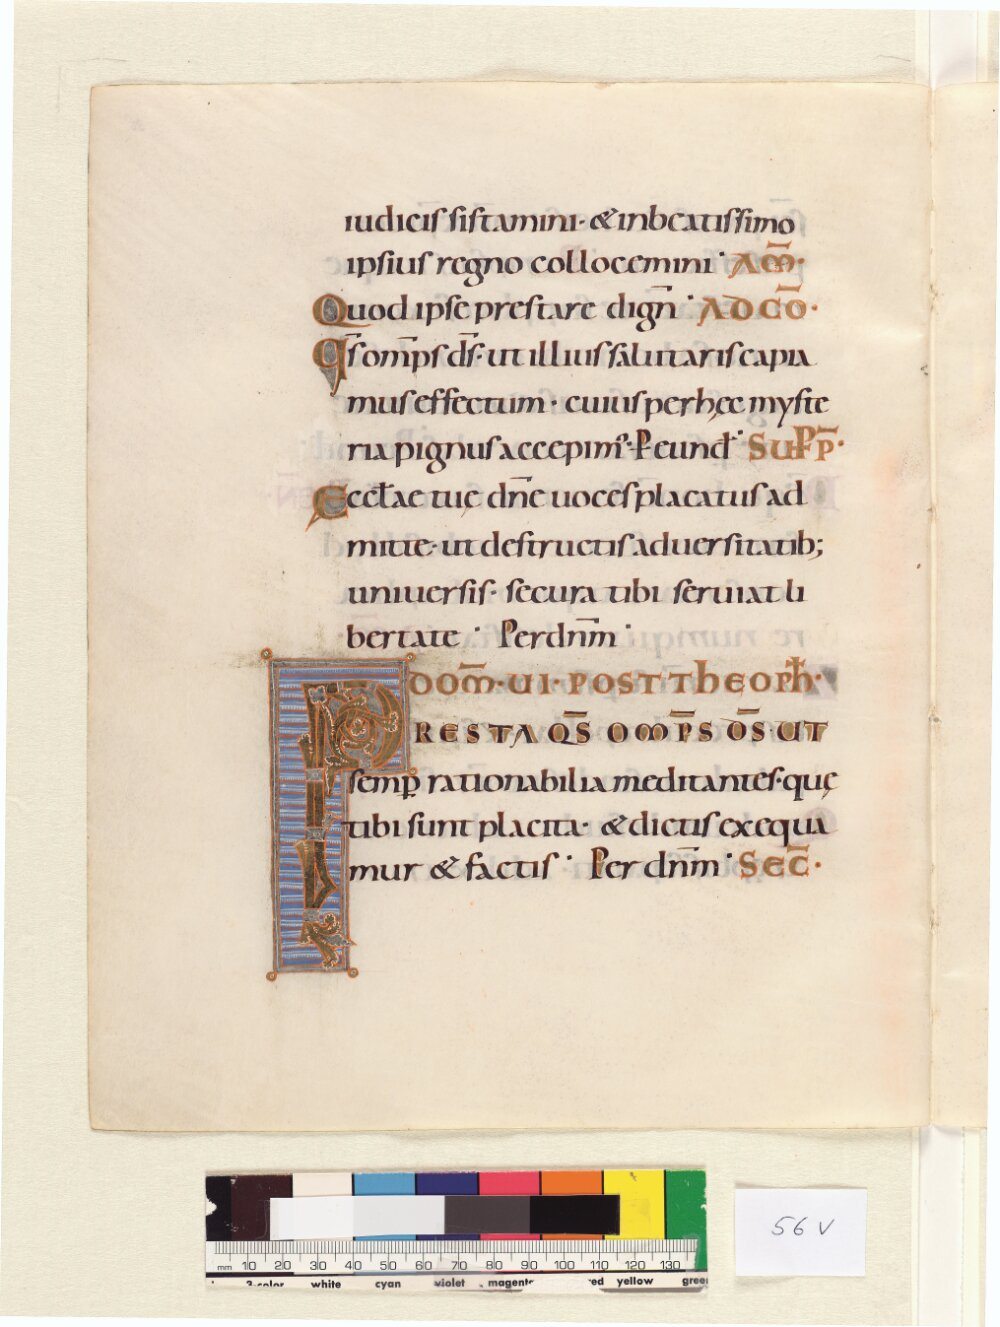 iudicis sistamini· & in beatissimo
ipsius regno collocemini· AM̄·
Quod ipse prestare dign̄· AD CŌ·
Qs̄ om̄ps ds̄· ut illius salutaris capia
mus effectum· cuius per hęc myste
ria pignus accepim᾽· ꝑ eund̄· SUꝑP̄·
Eccłae tuę dn̄e uoces placatus ad
mitte· ut destructis aduersitatib;
uniuersis· secura tibi seruiat li
bertate· Per dn̄m·
DOM̄· UI· POST ThEOPh̄·
PRESTA QS̄ OMP̄S D̄S· UT
semꝑ rationabilia meditantes· quę
tibi sunt placita· & dictis exequa
mur & factis· Per dn̄m· SEC̄·
56 v
mm 10 20 30 40 50 60 70 80 90 100 110 120 130
3-color white cyan violet magenta red yellow green